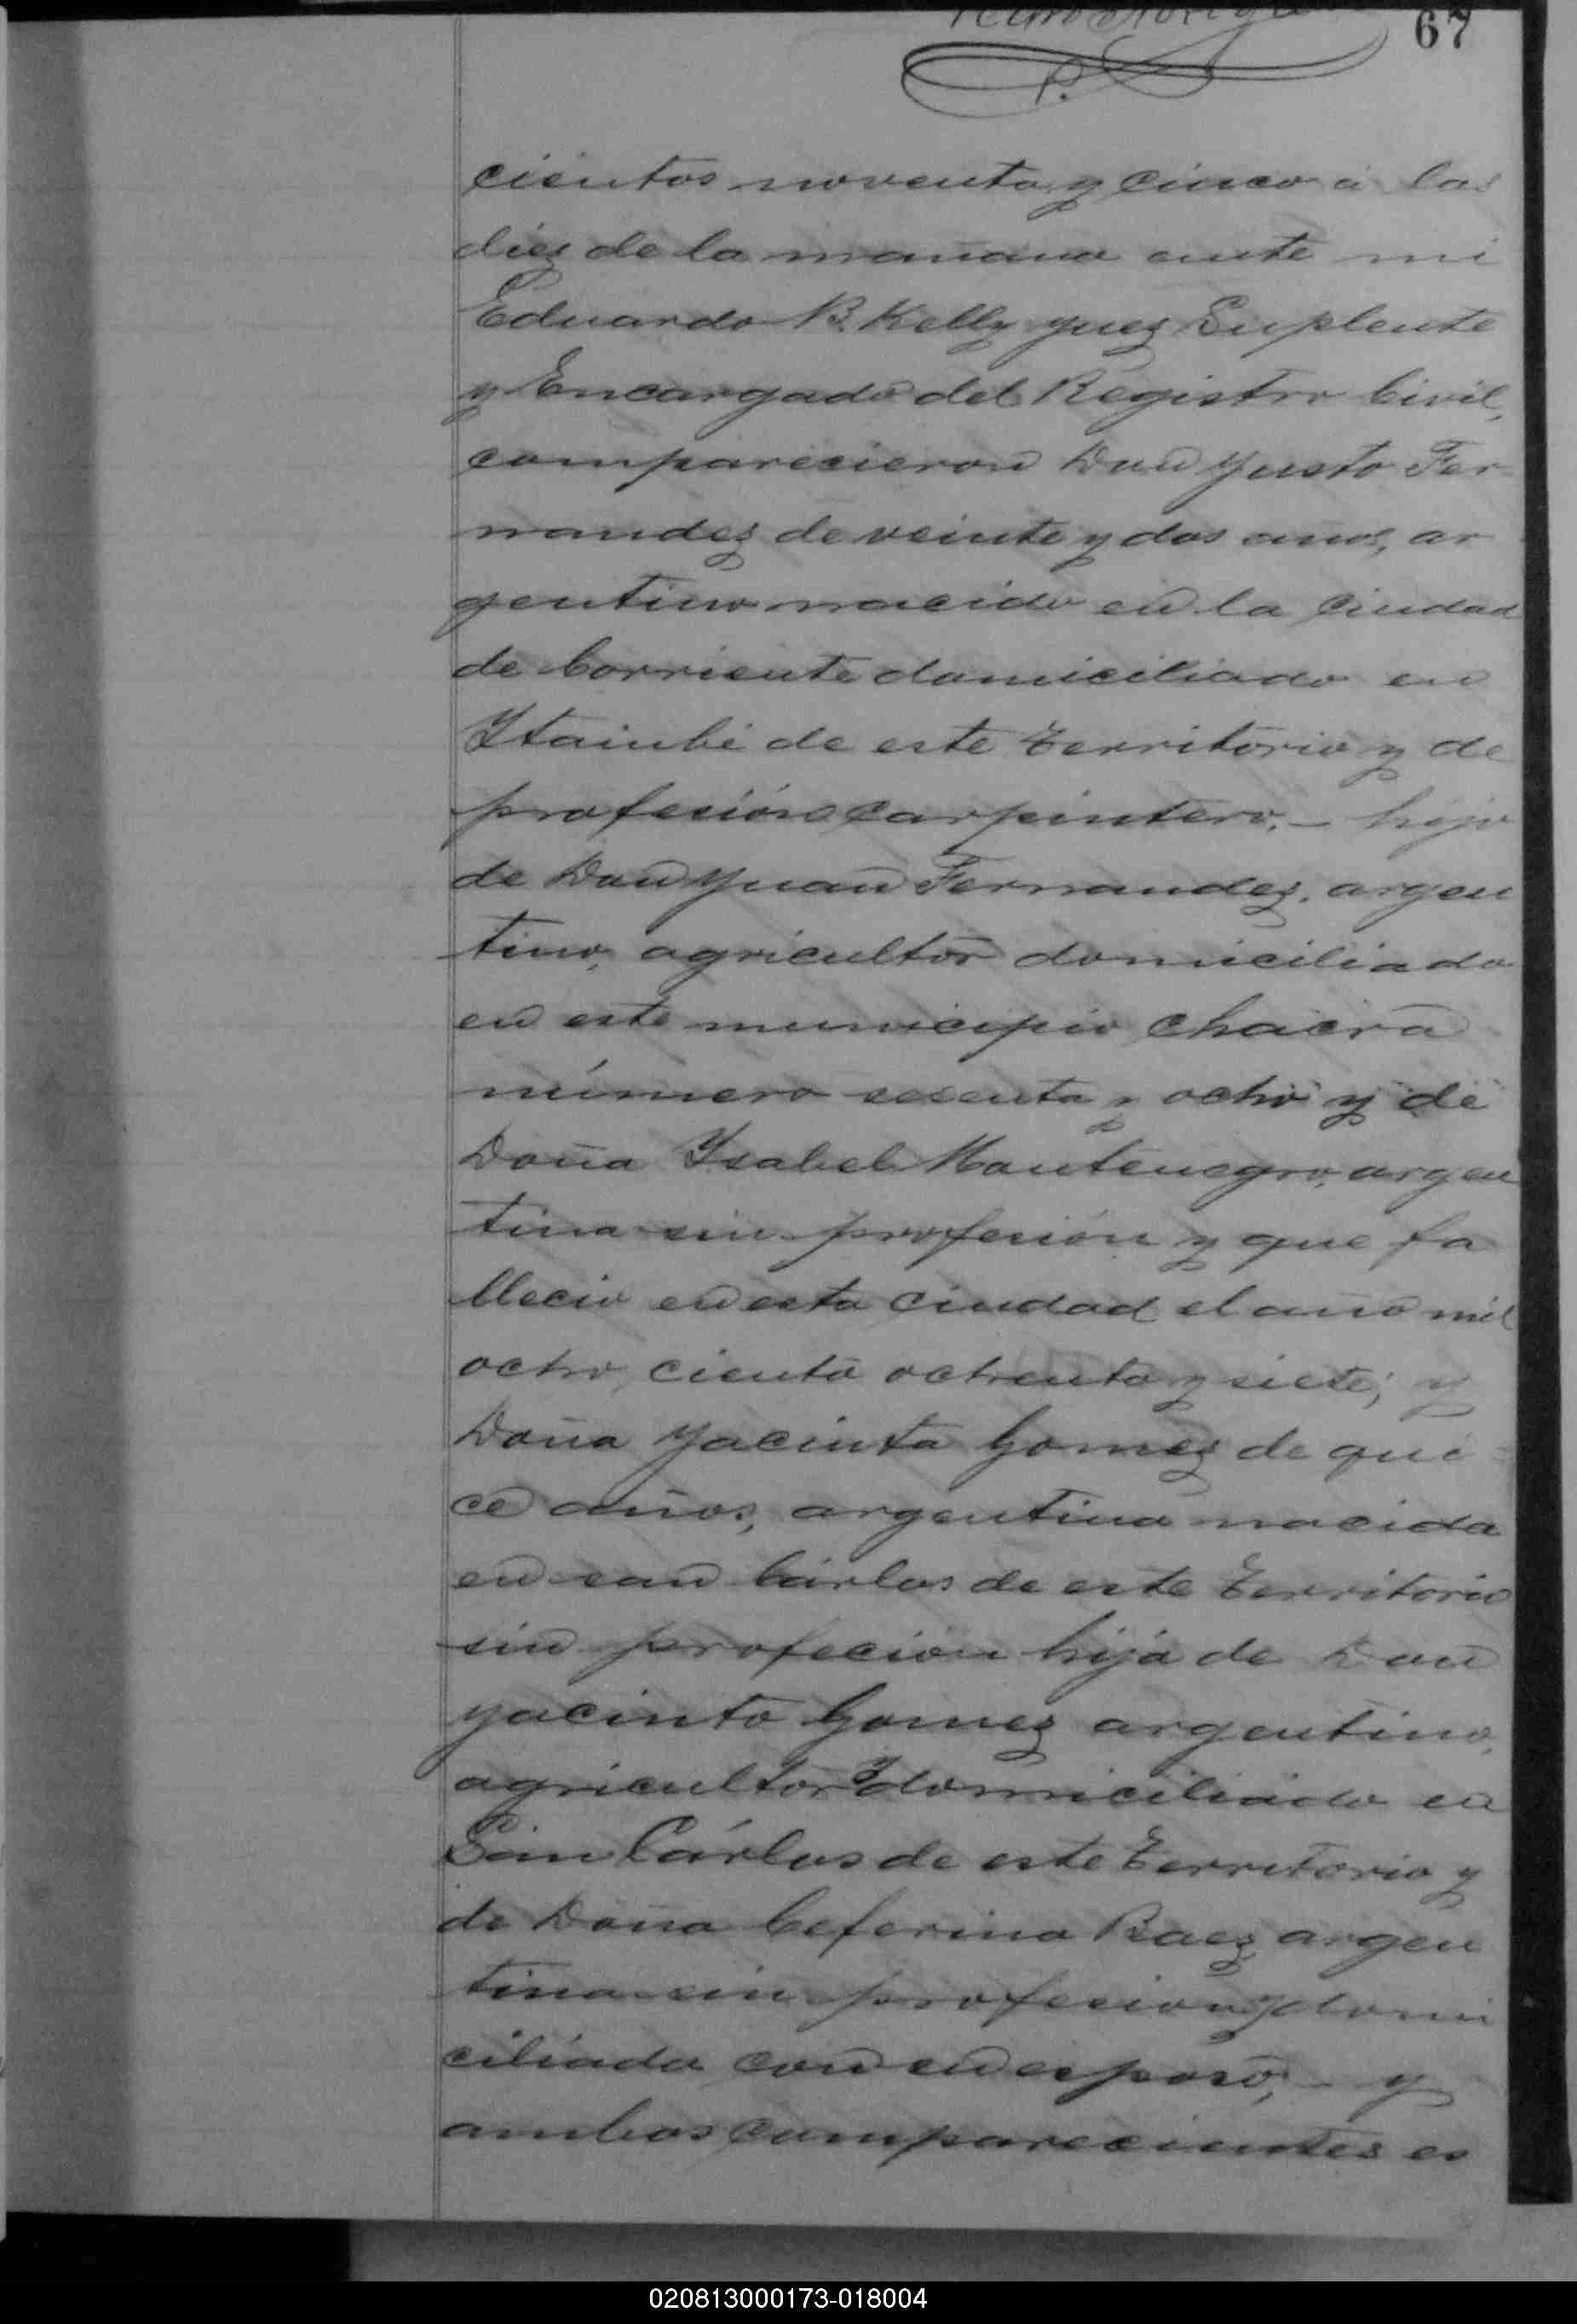 67
P.
cientos noventa y cinco á las
diez de la mañana ante mi
Eduardo B. Kelly Yuez Suplente
y Encargado del Registro Civil,
comparecieron Don Yusto Fer
nandez de veinte y dos años, ar
gentino nacido en la Ciudad
de Corriente domiciliado en
Ytaimbé de este Territorio y de
profesión carpintero. – hijo
de Don Yuan Fernandez, argen
tino, agricultor domiciliado
en este municipio chacra
número sesenta y ocho y de
Doña Ysabel Montenegro, argen
tina sin profesión y que fa
llecio en esta ciudad el año mil
ocho ciento ochenta y siete; y
Doña Yacinta Gomez de qui
ce años, argentina nacida
en san Cárlos de este Territorio
sin profeción hija de Don
Yacinto Gomez argentino,
agricultor y domiciliado en
San Cárlos de este Territorio y
de Doña Ceferina Baez argen
tina sin profesion y domi
ciliada con su esposo, – y
ambos comparecientes es
020813000173-018004